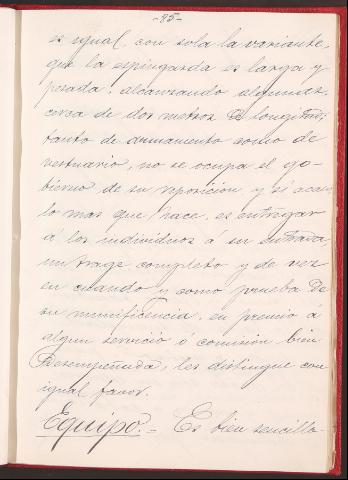 -85-
es igual, con sola la variante,
que la espingarda es larga y
pesada, alcanzando algunas,
cerca de dos metros de longitud;
tanto de armamento como de
vestuario, no se ocupa el go-
bierno de su reposición y si acaso
lo mas que hace, es entregar
á los individuos á su entrada
un trage completo y de vez
en cuando y como prueba de
su munificencia, en premio a
algun servicio ó comisión bien
desempeñada, les distingue con
igual favor.
Equipo.- Es bien sencillo